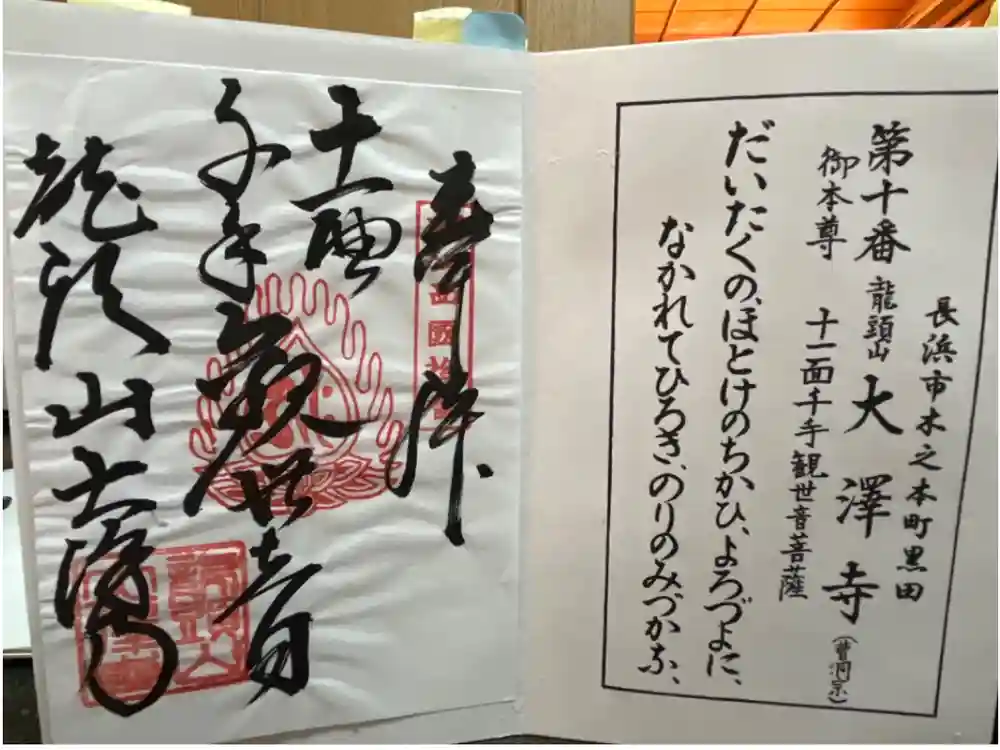 長浜市木之本町黒田
第十番 龍頭山 大澤寺(曹洞宗)
御本尊 十一面千手観世音菩薩
だいたくの、ほとけのちかひ、よろづよに、
なかれてひろき、のりのみづかな、
奉拝
十一面
千手観世音
龍頭山大澤寺